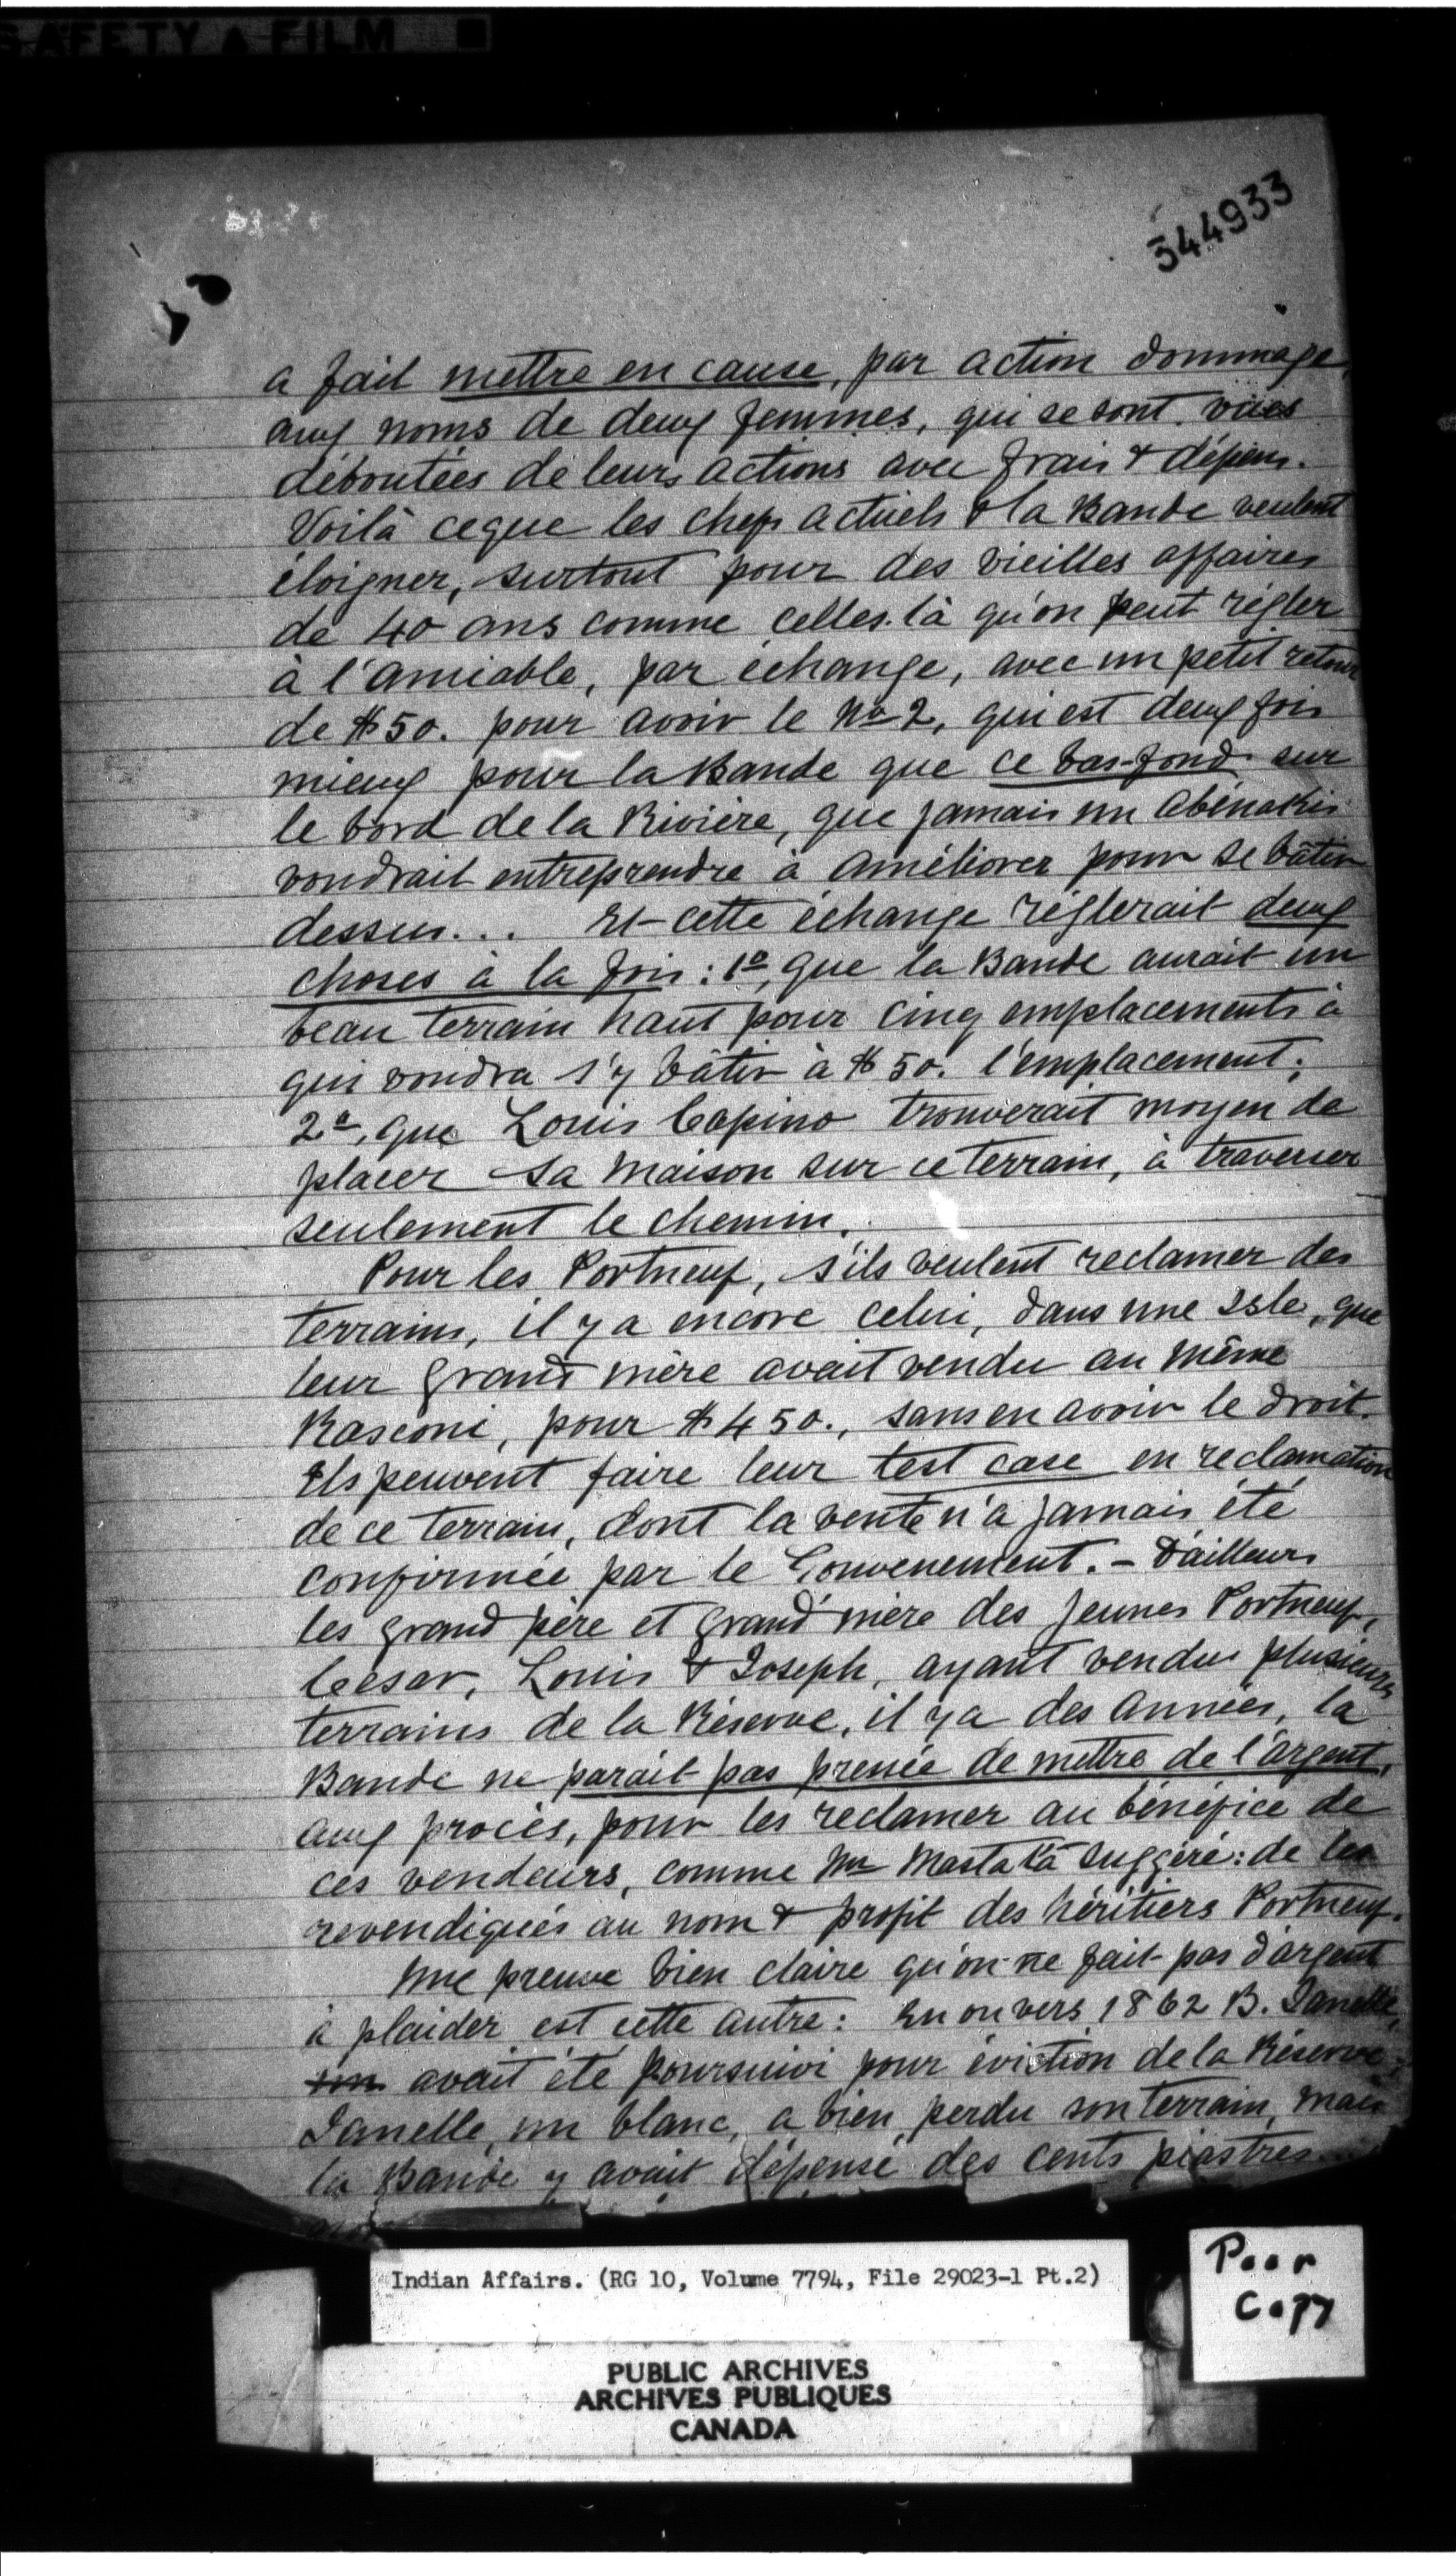 SAFETY ▲ FILM ■
544933
a fait mettre en cause, par action dommage,
aux noms de deux femmes, qui se sont vües
déboutées de leurs actions avec frais & dépens.
Voilà ceque les chefs actuels & la Bande veulent
éloigner, surtout pour des vieilles affaires
de 40 ans comme celles-là qu'on peut régler
à l'amiable, par échange, avec un petit retour
de $50. pour avoir le No 2, qui est deux fois
mieux pour la Bande que ce bas-fond sur
le bord de la Rivière, que jamais un Abénakis
voudrait entreprendre à améliorer pour se bâtir
dessus... Et cette échange réglerait deux
choses à la fois: 1o, que la Bande aurait un
beau terrain haut pour cinq emplacements à
qui voudra s'y bâtir à $50. l'emplacement;
2o, que Louis Capino trouverait moyen de
placer sa maison sur ce terrain, à traverser
seulement le chemin.
Pour les Portneuf, s'ils veulent reclamer des
terrains, il y a encore celui, dans une Isle, que
leur grand mère avait vendu au même
Rasconi, pour $450., sans en avoir le droit.
Ils peuvent faire leur test case en reclamation
de ce terrain, dont la vente n'a jamais été
confirmée par le Gouvenement. - D'ailleurs
les grand père et grand'mère des jeunes Portneuf,
César, Louis & Joseph, ayant vendu plusieurs
terrains de la Réserve, il y a des années, la
Bande ne parait pas pressée de mettre de l'argent,
aux procès, pour les reclamer au bénéfice de
ces vendeurs, comme Mr Masta l'a suggéré: de les
revendiqués au nom & profit des héritiers Portneuf.
Une preuve bien claire qu'on ne fait pas d'argent
à plaider est cette autre: En ou vers 1862 B. Janelle,
avait été poursuivi pour éviction de la Réserve;
Janelle, un blanc, a bien perdu son terrain, mais
la Bande y avait dépensé des cents piastres...
Indian Affairs. (RG 10, Volume 7794, File 29023-1 Pt.2)
Poor
Copy
PUBLIC ARCHIVES
ARCHIVES PUBLIQUES
CANADA